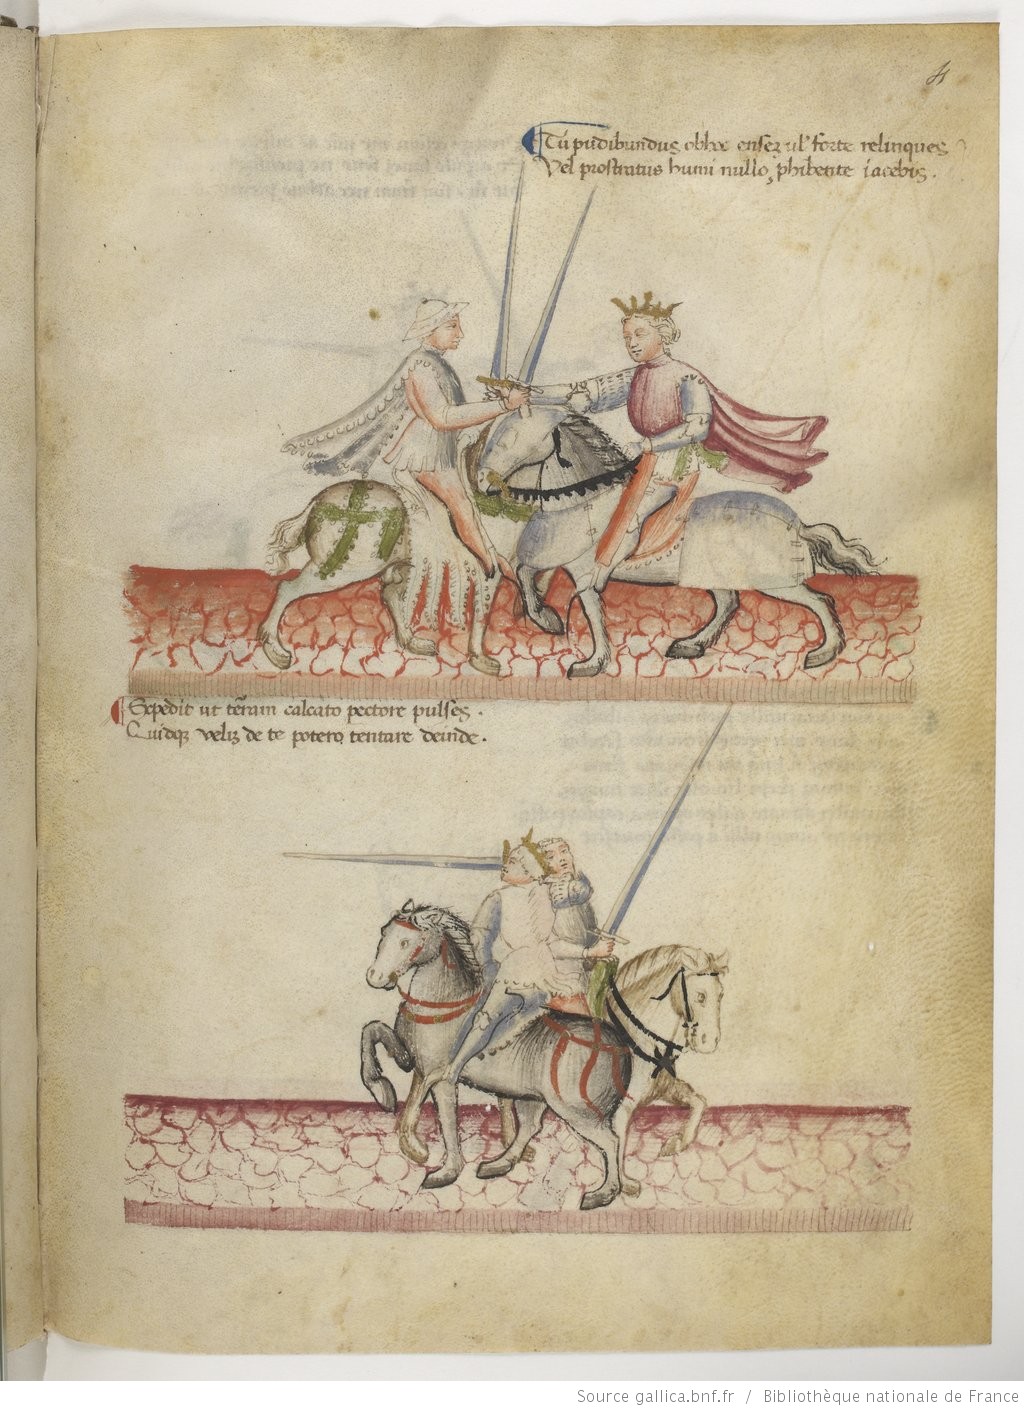 4
Tu pudibundus obhoc ensez ul' forte relinques
Vel prostratus humi nullo phibente iacebis.
Expedit ut terram calcato pectore pulses.
Quidqz veliz de te potero tentare deinde.
Source gallica.bnf.fr / Bibliothèque nationale de France